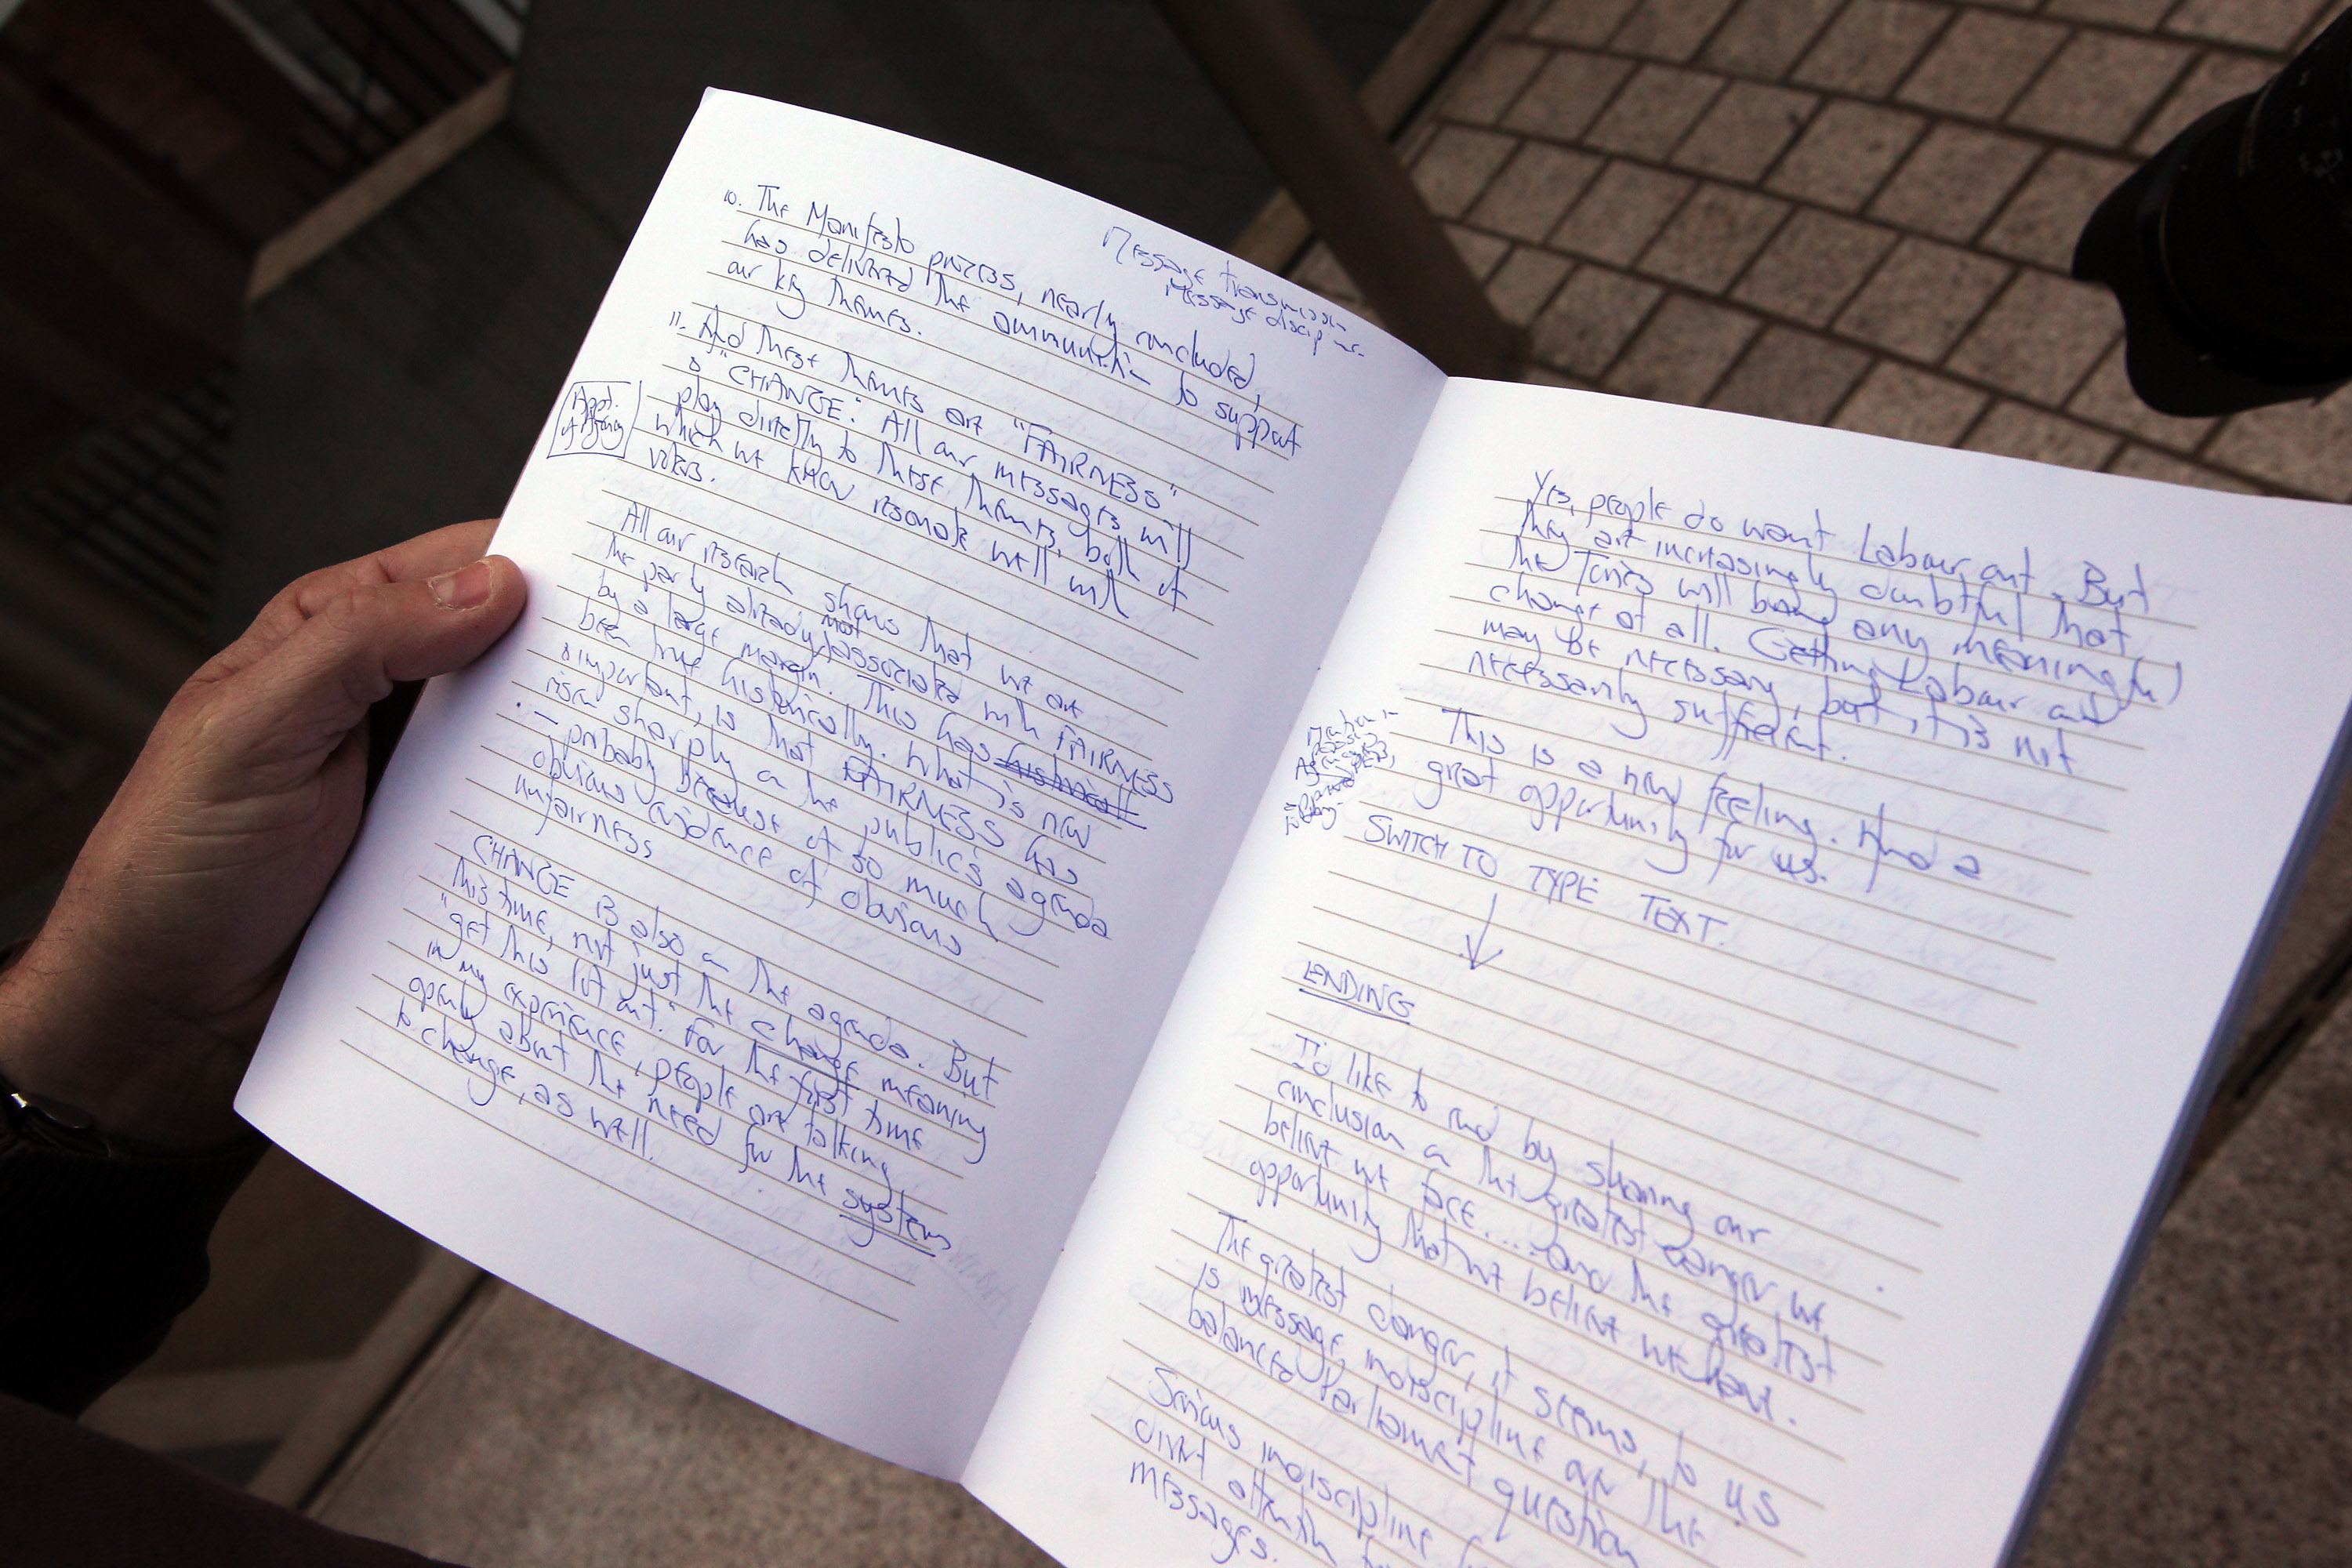 Message transmission
Message discipline
10. The Manifesto process, nearly concluded,
has delivered the ammunition to support
our key themes.
11. And these themes are "FAIRNESS"
& "CHANGE". All our messages will
play directly to these themes, both of
which we know resonate well with
voters.
All our research shows that we are
the party already most associated with FAIRNESS
by a large margin. This has
been true historically. What is new
& important, is that FAIRNESS has
risen sharply on the public's agenda
- probably because of so much
obvious evidence of obvious
unfairness
CHANGE is also on the agenda. But
this time, not just the change meaning
"get this lot out." For the first time
in my experience, people are talking
openly about the need for the system
to change, as well.
Yes, people do want Labour out. But
they are increasingly doubtful that
the Tories will bring any meaningful
change at all. Getting Labour out
may be necessary, but it is not
necessarily sufficient.
This is a new feeling. And a
great opportunity for us.
SWITCH TO TYPE TEXT.
ENDING
I'd like to end by sharing our
conclusion on the greatest danger we
believe we face.... and the greatest
opportunity that we believe we have.
The greatest danger, it seems, to us
is message indiscipline on the
balanced Parliament question
Serious indiscipline
divert attention
messages.